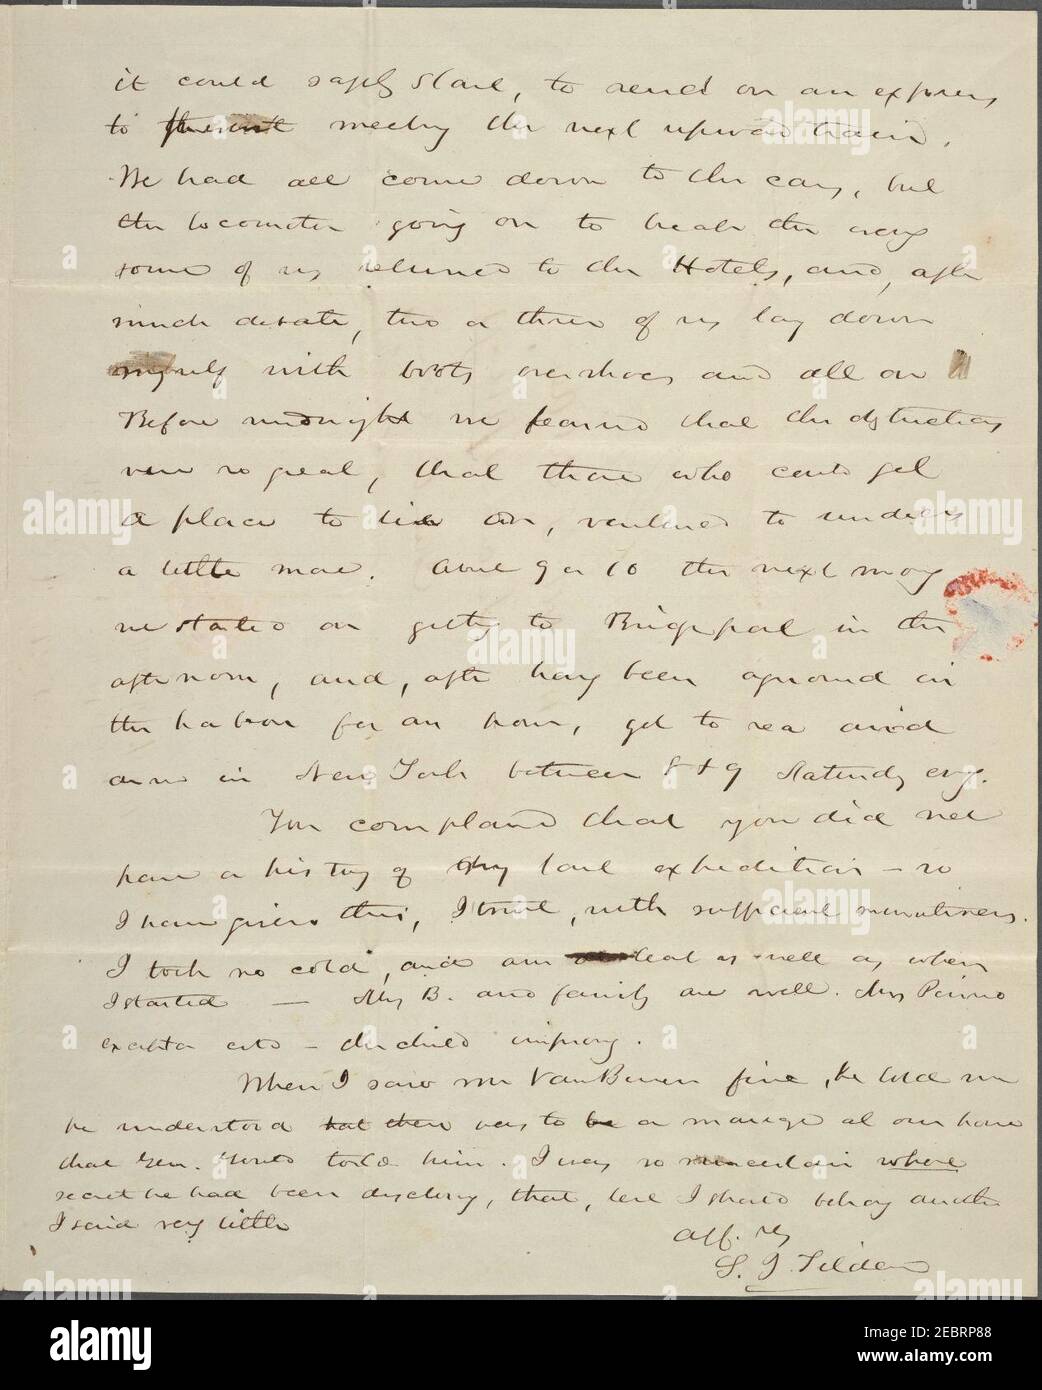 it could safely start, to send on an express
to meeting the next upward train.
We had all come down to the cars, but
the locomotive going on to break the way
some of us returned to the Hotels, and, after
much debate, two or three of us lay down
myself with boots overshoes and all on
Before midnight we feared that the obstructions
were so great, that those who could get
a place to lie on, ventured to undress
a little more. About 9 or 10 the next morg
we started on getty to Bridgeport in the
afternoon, and, after havg been aground in
the harbor for an hour, got to sea and
arrd in New York between 8 & 9 Saturday evg.
You complaind that you did not
have a history of my last expedition – so
I have given this, I trust, with sufficient minuteness.
I took no cold, and am at least as well as when
I started — Mrs B. and family are well. Mrs
– the child improvg.
When I saw Mr Van Buren first, he told me
he understood that there was to be a marriage at our house
that Gen. told him. I was so uncertain where
secret he had been disclosg, that, lest I should betray another
I said very little
Aff. yrs
S. J. Tilden
alamy
Image ID: 2EBRP88
www.alamy.com